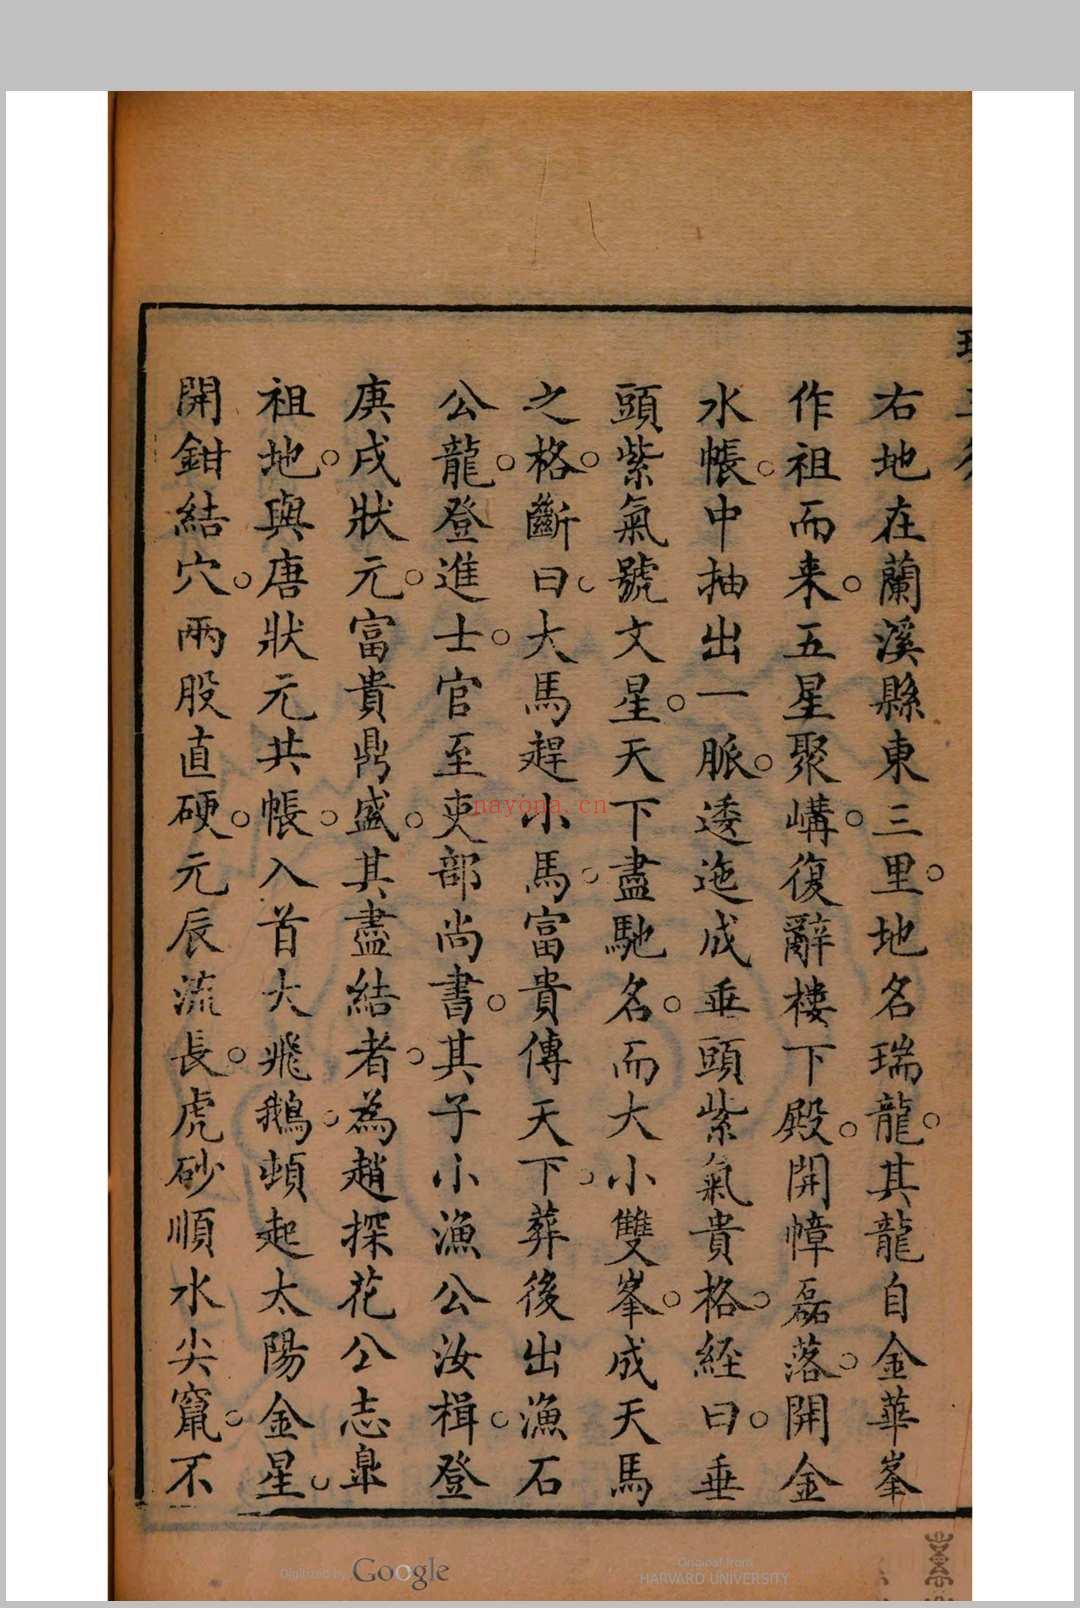 右地在蘭溪縣東三里地名瑞龍其龍自金華峯
作祖而来五星聚嶹復辭樓下殿開幛磊落開金
水帳中抽出一脈逶迤成垂頭紫氣貴格經曰垂
頭紫氣號文星天下盡馳名而大小雙峯成天馬
之格斷曰大馬趕小馬富貴傳天下葬後出漁石
公龍登進士官至吏部尚書其子小漁公汝楫登
庚戌狀元富貴鼎盛其盡結者為趙探花公志臯
祖地與唐狀元共帳入首大飛鵝頓起太陽金星
開鉗結穴兩股直硬元辰流長虎砂順水尖竄不
nayona.cn
Digitized by Google
Original from
HARVARD UNIVERSITY